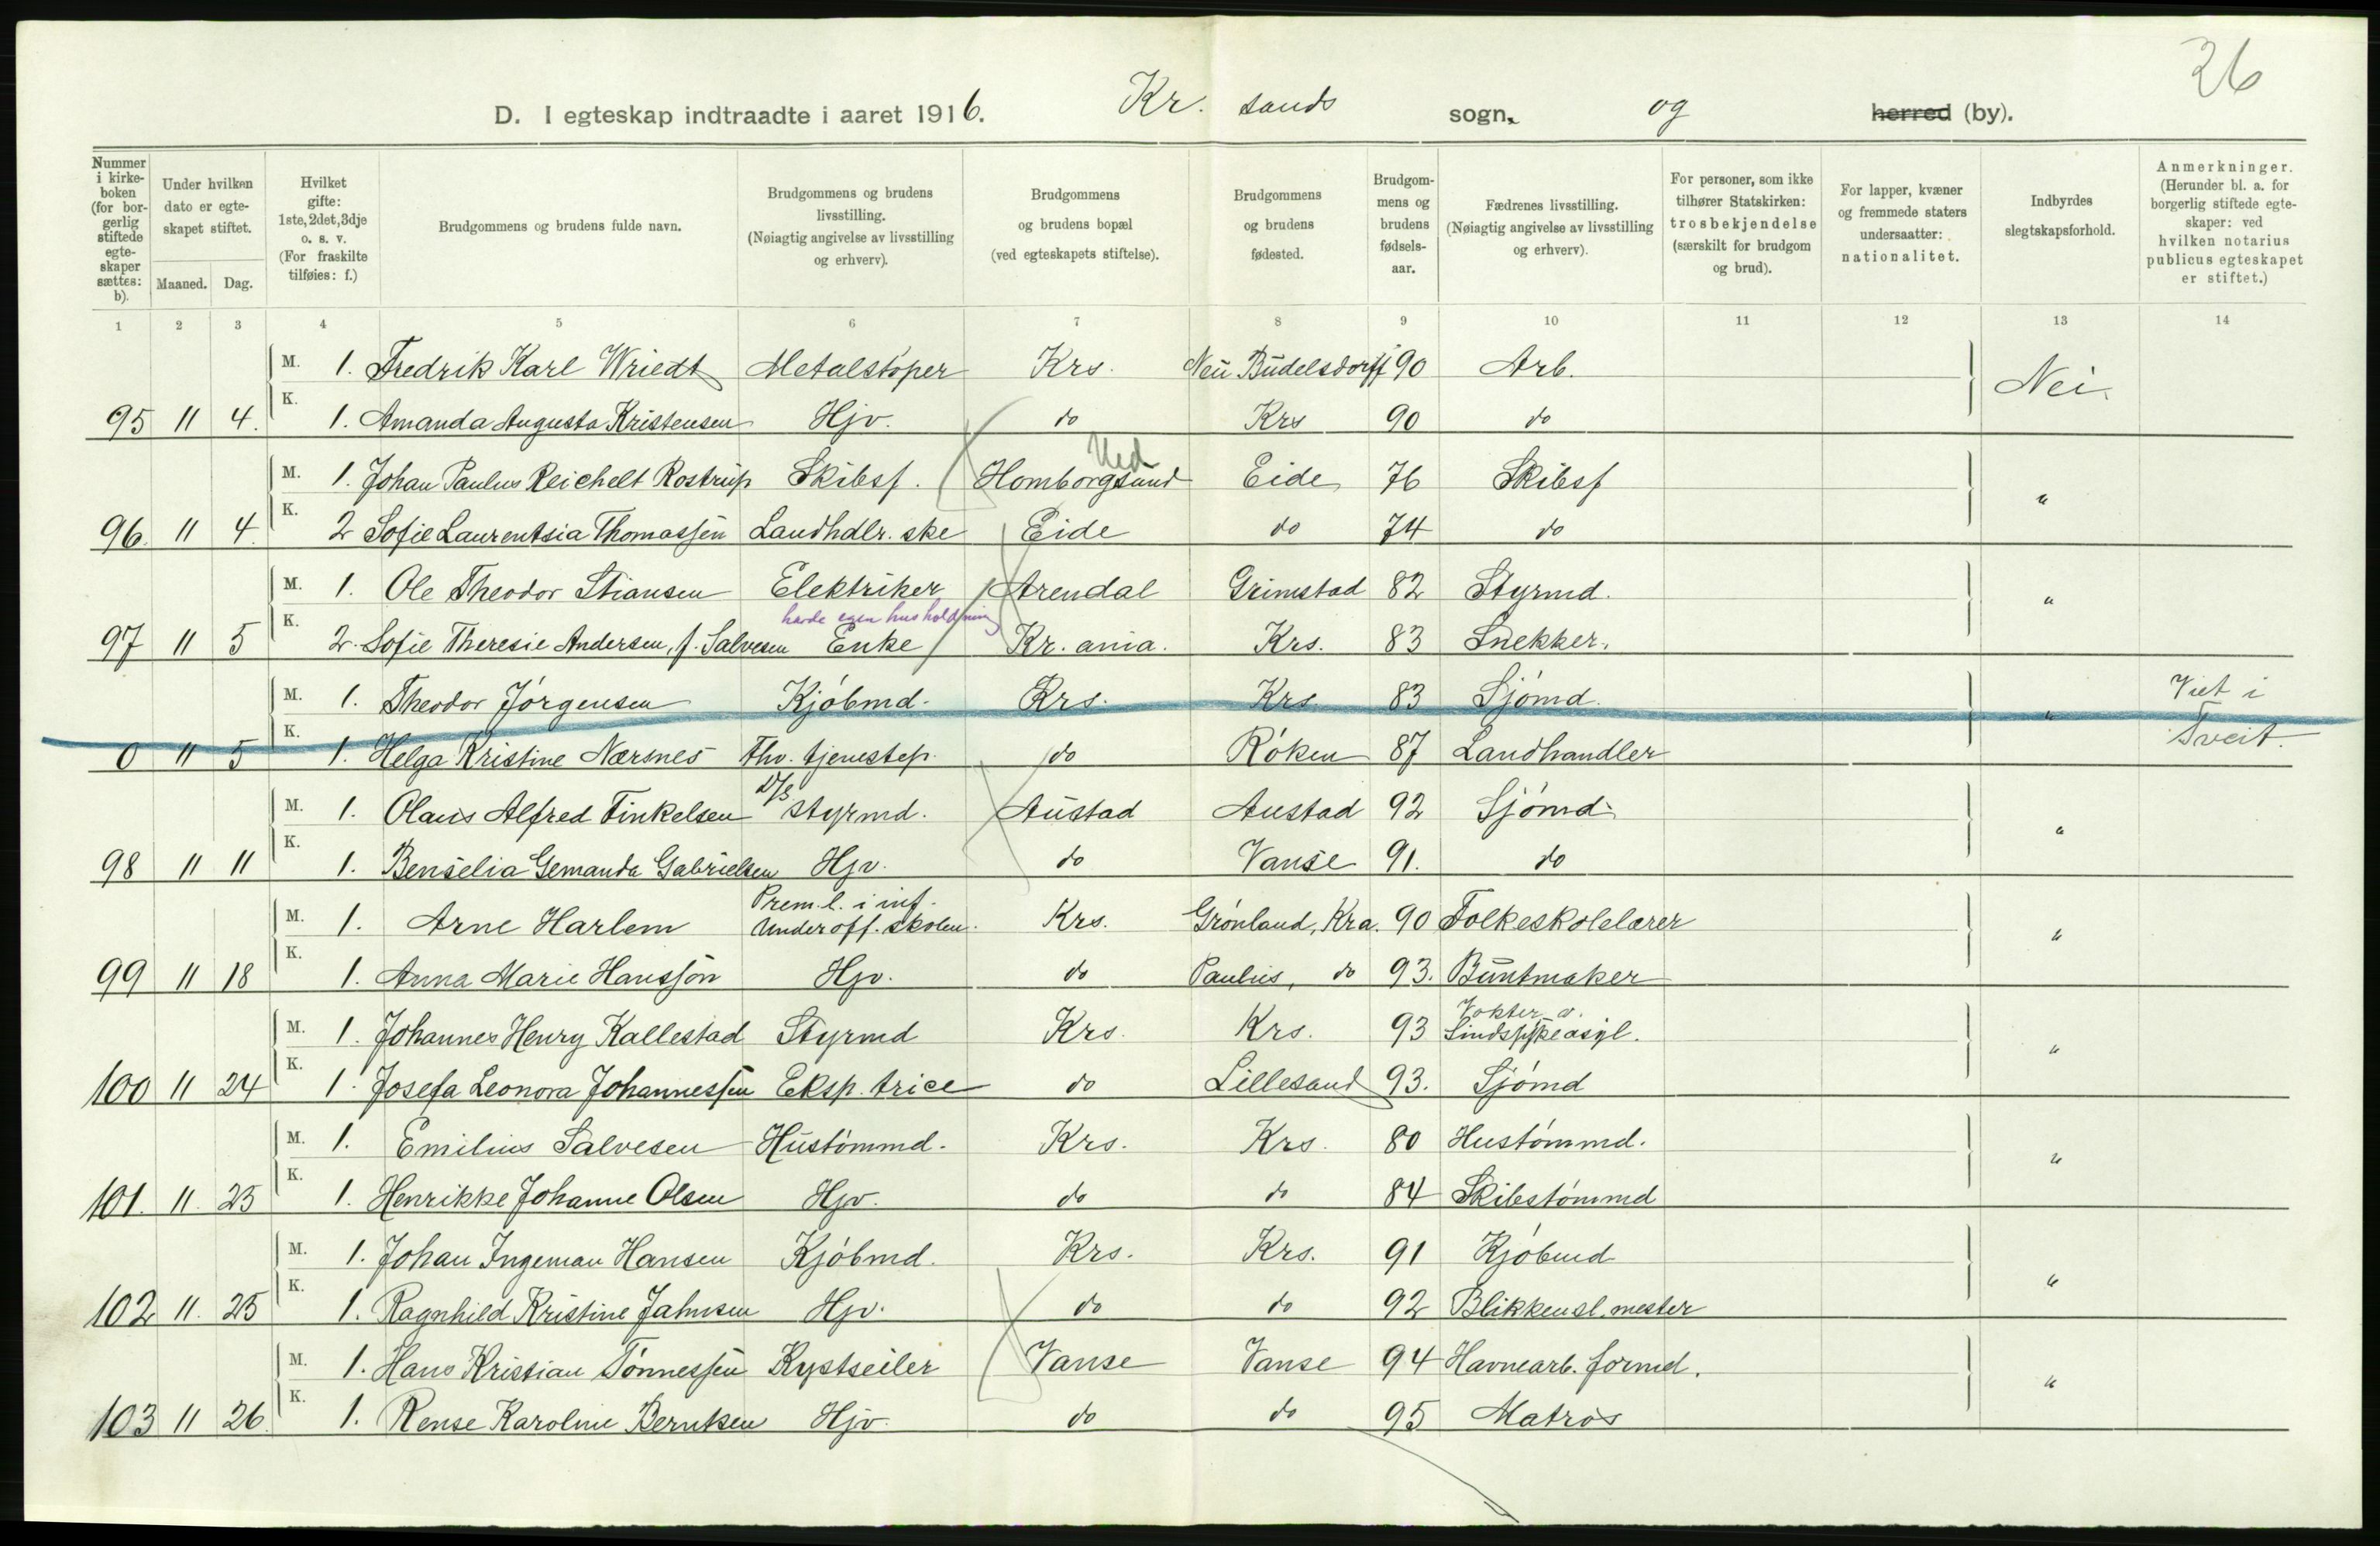 26
D. I egteskap indtraadte i aaret 1916. Kr. sands sogn. og herred (by).
Nummer i kirkeboken (for borgerlig stiftede egteskaper sættes: b). Under hvilken dato er egteskapet stiftet. Maaned. Dag. Hvilket gifte: 1ste, 2det, 3dje o. s. v. (For fraskilte tilføies: f.) Brudgommens og brudens fulde navn. Brudgommens og brudens livsstilling. (Nøiagtig angivelse av livsstilling og erhverv). Brudgommens og brudens bopæl (ved egteskapets stiftelse). Brudgommens og brudens fødested. Brudgommens og brudens fødselsaar. Fædrenes livsstilling. (Nøiagtig angivelse av livsstilling og erhverv). For personer, som ikke tilhører Statskirken: trosbekjendelse (særskilt for brudgom og brud). For lapper, kvæner og fremmede staters undersaatter: nationalitet. Indbyrdes slegtskapsforhold. Anmerkninger. (Herunder bl. a. for borgerlig stiftede egteskaper: ved hvilken notarius publicus egteskapet er stiftet.)
1 2 3 4 5 6 7 8 9 10 11 12 13 14
M. 1. Fredrik Karl Wriedt Metalstøper Krs. Neu Büdelsdorff 90 Arb. Nei.
95 11 4. K. 1. Amanda Augusta Kristensen Hjv. do Krs 90 do
M. 1. Johan Paulus Reichelt Rostrup Skibsf. Homborgsund Eide 76 Skibsf "
96. 11 4. K. 2 Sofie Laurentsia Thomassen Landhdlr. ske Eide do 74 do
M. 1. Ole Theodor Stiansen Elektriker Arendal Grimstad 82 Styrmd. "
havde egen husholdning
97 11 5 K. 2. Sofie Theresie Andersen, f. Salvesen Enke Kr. ania. Krs. 83 Snekker.
M. 1. Theodor Jörgensen Kjöbmd. Krs. Krs. 83 Sjömd. " Viet i
0 11 5 K. 1. Helga Kristine Nærsnes Fhv. tjenestep. do Röken 87 Landhandler Tveit.
M. 1. Olaus Alfred Tinkelsen D/S Styrmd. Austad Austad 92 Sjömd. "
98 11 11 K. 1. Benselia Gemanda Gabrielsen Hjv. do Vanse 91. do
M. 1. Arne Harlem Prem.l. i inf. Underoff. skolen. Krs. Grönland, Kra. 90 Folkeskolelærer "
99 11 18 K. 1. Anna Marie Hansson Hjv. do Paulus, do 93. Buntmaker
M. 1. Johannes Henry Kallestad Styrmd Krs. Krs. 93 Vokter v. Sindssykeasyl. "
100 11 24 K. 1. Josefa Leonora Johannessen Eksp. trice do Lillesand 93. Sjömd
M. 1. Emilius Salvesen Hustömmd. Krs. Krs. 80 Hustömmd. "
101. 11. 25 K. 1. Henrikke Johanne Olsen Hjv. do do 84 Skibstömmd
M. 1. Johan Ingeman Hansen Kjöbmd. Krs. Krs. 91 Kjöbmd "
102 11. 25 K. 1. Ragnhild Kristine Jahnsen Hjv. do do 92 Blikkensl. mester
M. 1. Hans Kristian Tönnessen Kystseiler Vanse Vanse 94 Havnearb. formd. "
103 11 26. K. 1. Rense Karoline Berntsen Hjv. do do 95 Matros